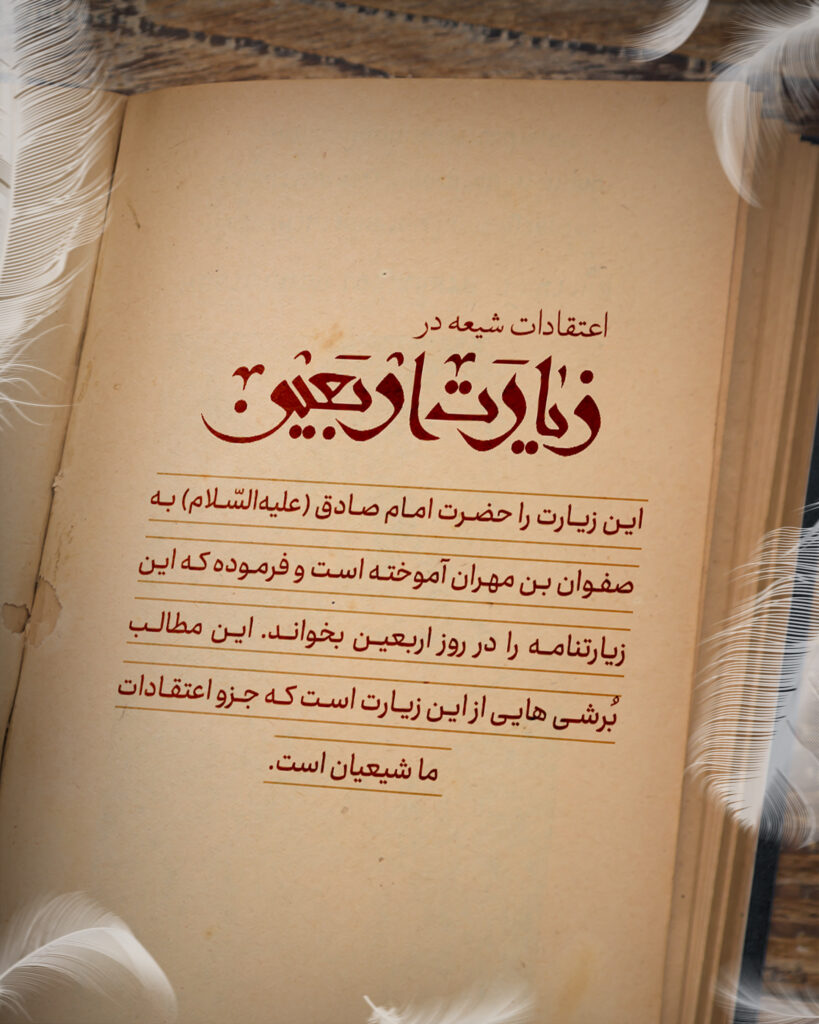 اعتقادات شیعه در
زیارت اربعین
این زیارت را حضرت امام صادق (علیه‌السّلام) به
صفوان بن مهران آموخته است و فرموده که این
زیارتنامه را در روز اربعین بخواند. این مطالب
بُرشی هایی از این زیارت است که جزو اعتقادات
ما شیعیان است.